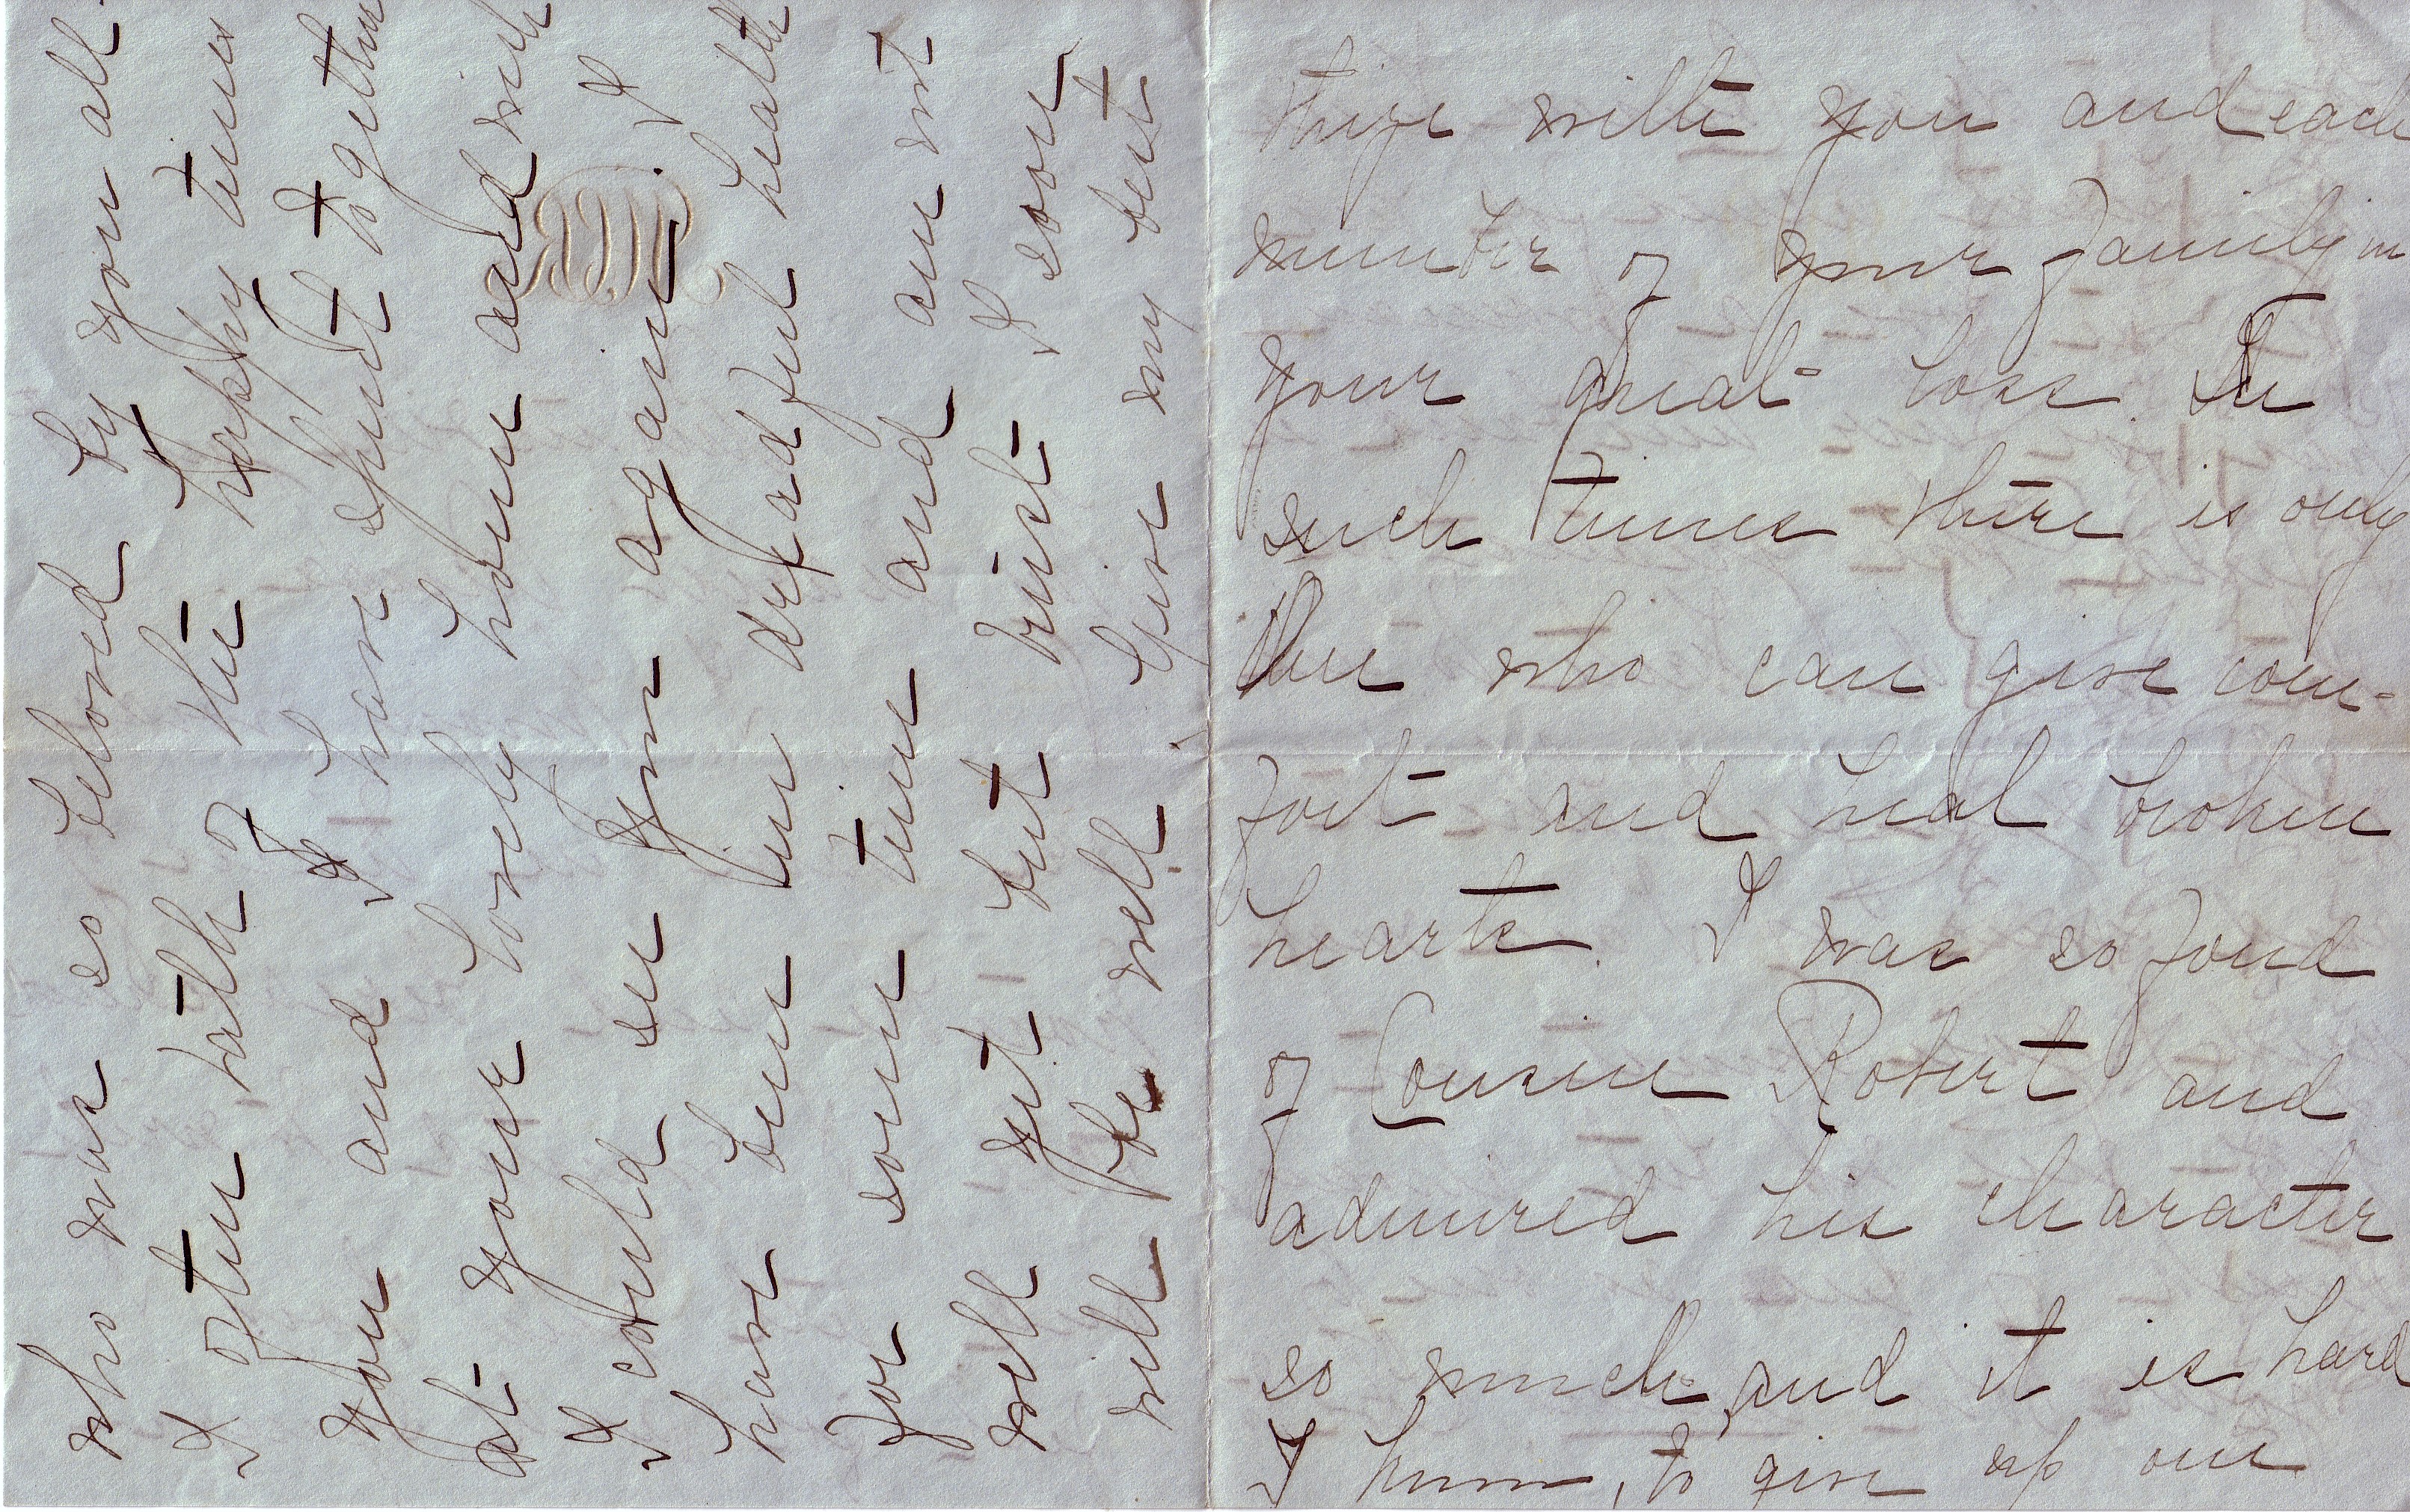 thize with you and each
member of your family in
your great loss. In
such times there is only
One who can give com-
fort and heal broken
hearts. I was so fond
of Cousin Robert and
admired his character
so much and it is hard
I know, to give up one
who was so beloved by you all.
I often talk of the happy times
you and I have spent together
at your lovely home and wish
I could see you again. I
have been in dreadful health
for some time and am not
well yet but trust I soon
will be well. Give my best